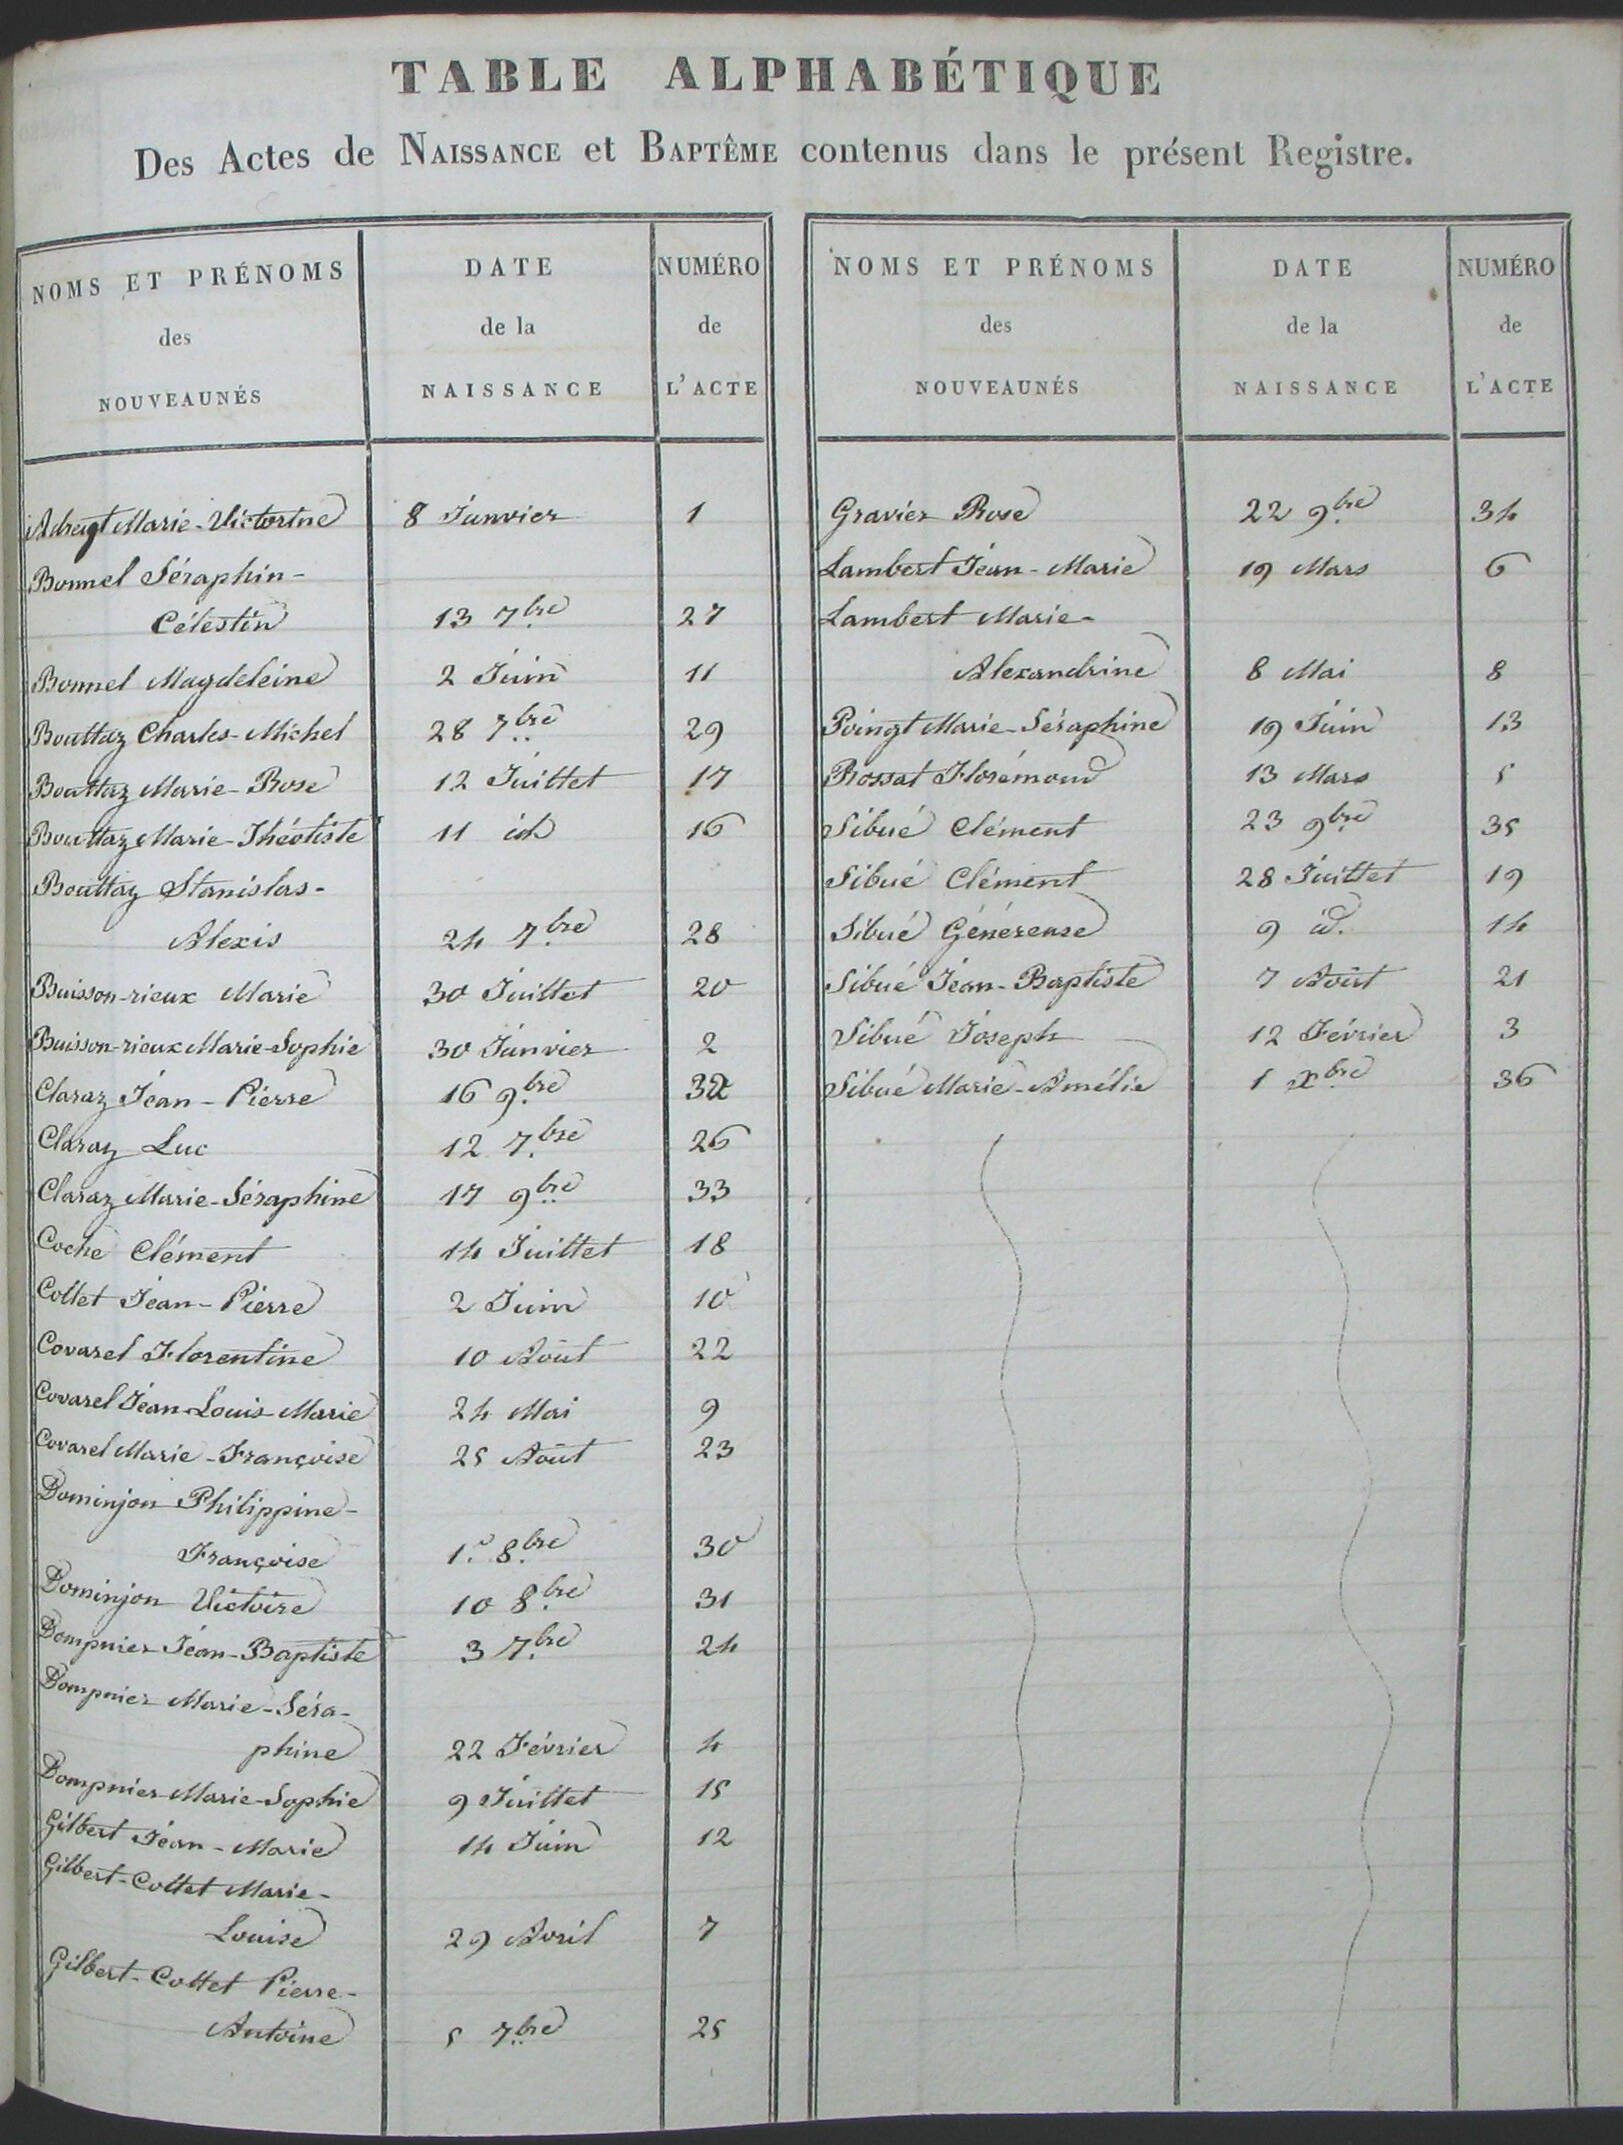 TABLE ALPHABÉTIQUE
Des Actes de NAISSANCE et BAPTÊME contenus dans le présent Registre.
NOMS ET PRÉNOMS
des
NOUVEAUNÉS
DATE
de la
NAISSANCE
NUMÉRO
de
L'ACTE
Marie-Victorine 8 Janvier 1
Bonnel Séraphin-
Célestin 13 7bre 27
Bonnel Magdeleine 2 Juin 11
Bouttaz Charles-Michel 28 7bre 29
Bouttaz Marie-Rose 12 Juillet 17
Bouttaz Marie-Théotiste 11 id 16
Bouttaz Stanislas-
Alexis 24 7bre 28
Buisson-rieux Marie 30 Juillet 20
Buisson-rieux Marie-Sophie 30 Janvier 2
Claraz Jean-Pierre 16 9bre 32
Claraz Luc 12 7bre 26
Claraz Marie-Séraphine 17 9bre 33
Coche Clément 14 Juillet 18
Collet Jean-Pierre 2 Juin 10
Covarel Florentine 10 Août 22
Covarel Jean-Louis-Marie 24 Mai 9
Covarel Marie-Françoise 25 Août 23
Dominjon Philippine-
Françoise 1.r 8bre 30
Dominjon Victoire 10 8bre 31
Dompnier Jean-Baptiste 3 7bre 24
Dompnier Marie-Séra-
phine 22 Février 4
Dompnier Marie-Sophie 9 Juillet 15
Gilbert Jean-Marie 14 Juin 12
Gilbert-Collet Marie-
Louise 29 Avril 7
Gilbert-Collet Pierre-
Antoine 5 7bre 25
NOMS ET PRÉNOMS
des
NOUVEAUNÉS
DATE
de la
NAISSANCE
NUMÉRO
de
L'ACTE
Gravier Rose 22 9bre 34
Lambert Jean-Marie 19 Mars 6
Lambert Marie-
Alexandrine 8 Mai 8
Poingt Marie-Séraphine 19 Juin 13
Rossat Florémond 13 Mars 5
Sibué Clément 23 9bre 35
Sibué Clément 28 Juillet 19
Sibué Généreuse 9 id. 14
Sibué Jean-Baptiste 7 Août 21
Sibué Joseph 12 Février 3
Sibué Marie-Amélie 1 Xbre 36